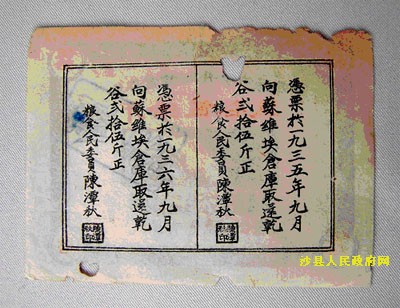 憑票於一九三五年九月
向蘇維埃倉庫取還乾
谷弍拾伍斤正
粮食人民委員陳潭秋
憑票於一九三六年九月
向蘇維埃倉庫取還乾
谷弍拾伍斤正
粮食人民委員陳潭秋
沙县人民政府网